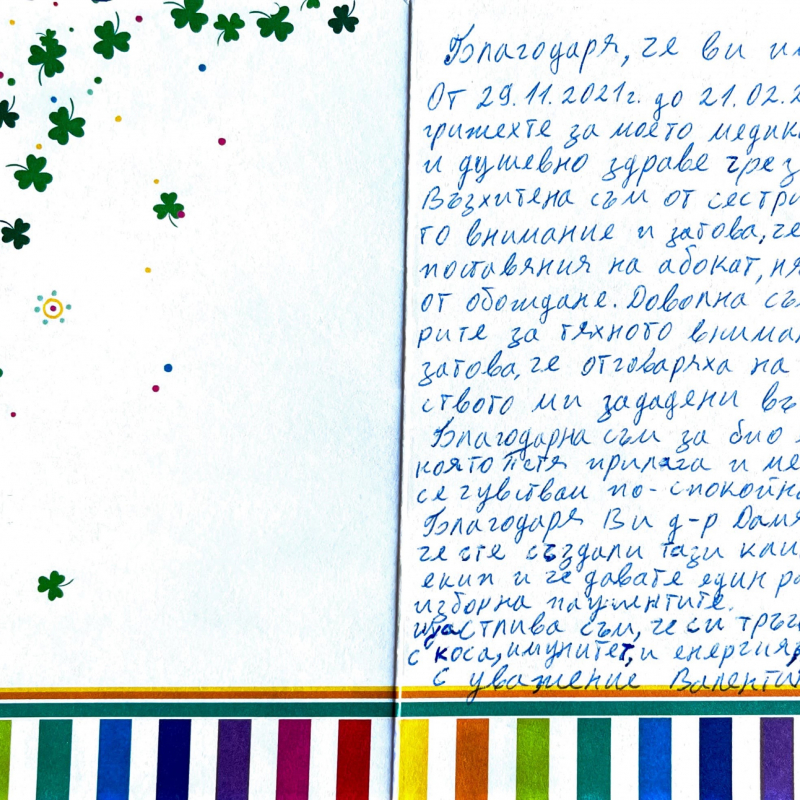 Благодаря, че ви им
От 29.11.2021г. до 21.02.2
грижехте за моето медик
и душевно здраве чрез
Възхитена съм от сестри
то внимание и затова, че
поставяния на абокат, ня
от обождане. Доволна съм
рите за тяхното вниман
затова, че отговаряха на
ството ми зададени въ
Благодарна съм за био
която Петя прилага и ме
се чувствам по-спокойна
Благодаря Ви д-р Дамя
че сте създали тази кли
екип и че давате един ра
избор на пациентите.
Щастлива съм, че си тръг
с коса, имунитет, и енергия,
С уважение Валенти